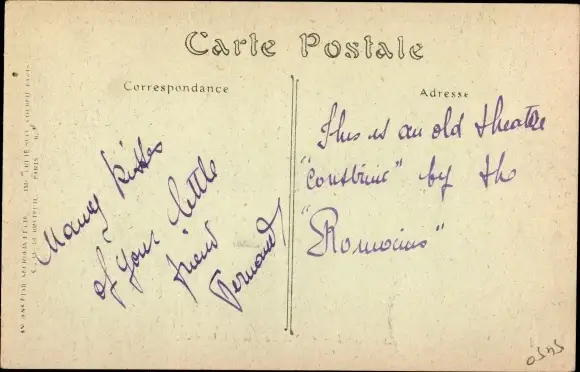 Carte Postale
Correspondance
Adresse
Many kisses
of your little
friend
Fernand
This is an old theatre
"Construic" by the
"Romocins"